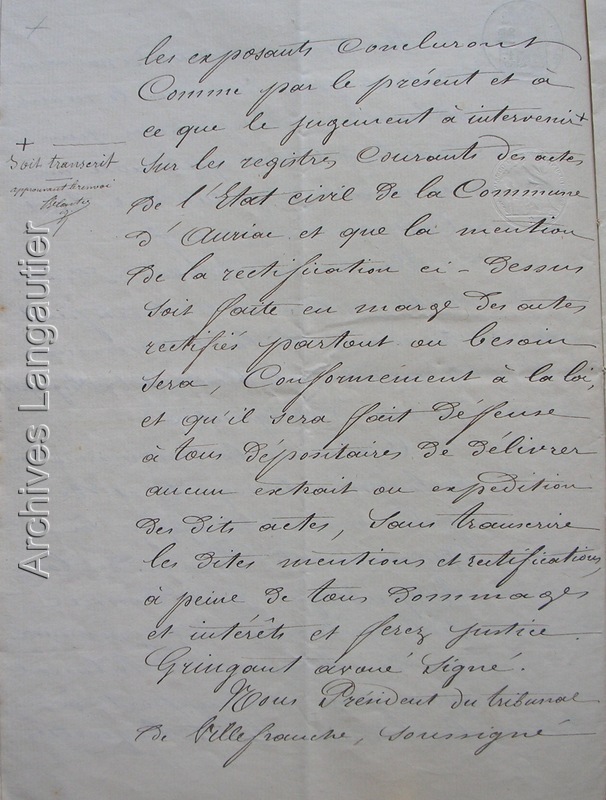 les exposants concluront
Comme par le présent et à
ce que le jugement à intervenir +
+
Soit transcrit
approuvant le renvoi
Sur les registres Courants des actes
de l'Etat civil de la Commune
d'Auriac et que la mention
de la rectification ci-dessus
soit faite en marge des actes
rectifiés partout ou besoin
sera, Conformément à la loi,
et qu'il sera fait défense
à tous dépositaires de délivrer
aucun extrait ou expedition
des dits actes, sans transcrire
les dites mentions et rectifications,
à peine de tous dommages
et intérêts et ferez justice.
Gringaut avoué signé.
Nous Président du tribunal
de Villefranche, soussigné
Archives Langautier